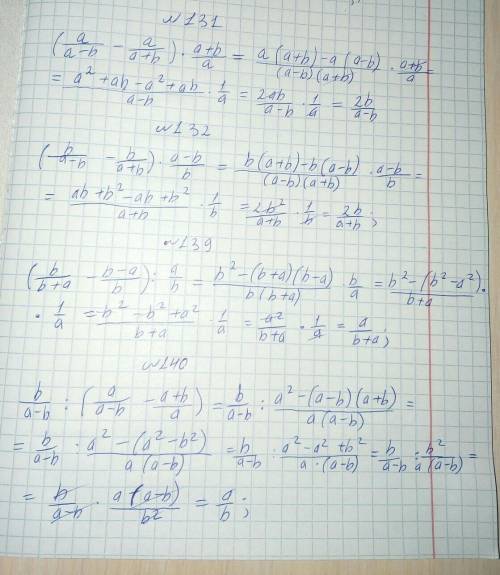 №131
(a/(a-b) - a/(a+b)) · (a+b)/a = (a(a+b)-a(a-b))/((a-b)(a+b)) · (a+b)/a =
= (a²+ab-a²+ab)/(a-b) · 1/a = 2ab/(a-b) · 1/a = 2b/(a-b)
№132
(b/(a-b) - b/(a+b)) · (a-b)/b = (b(a+b)-b(a-b))/((a-b)(a+b)) · (a-b)/b =
= (ab+b²-ab+b²)/(a+b) · 1/b = 2b²/(a+b) · 1/b = 2b/(a+b);
№139
(b/(b+a) - (b-a)/b) : a/b = (b²-(b+a)(b-a))/(b(b+a)) · b/a = (b²-(b²-a²))/(b+a) ·
· 1/a = (b²-b²+a²)/(b+a) · 1/a = a²/(b+a) · 1/a = a/(b+a);
№140
b/(a-b) : (a/(a-b) - (a+b)/a) = b/(a-b) : (a²-(a-b)(a+b))/(a(a-b)) =
= b/(a-b) : (a²-(a²-b²))/(a(a-b)) = b/(a-b) : (a²-a²+b²)/(a·(a-b)) = b/(a-b) : b²/(a(a-b)) =
= b/(a-b) · a(a-b)/b² = a/b;